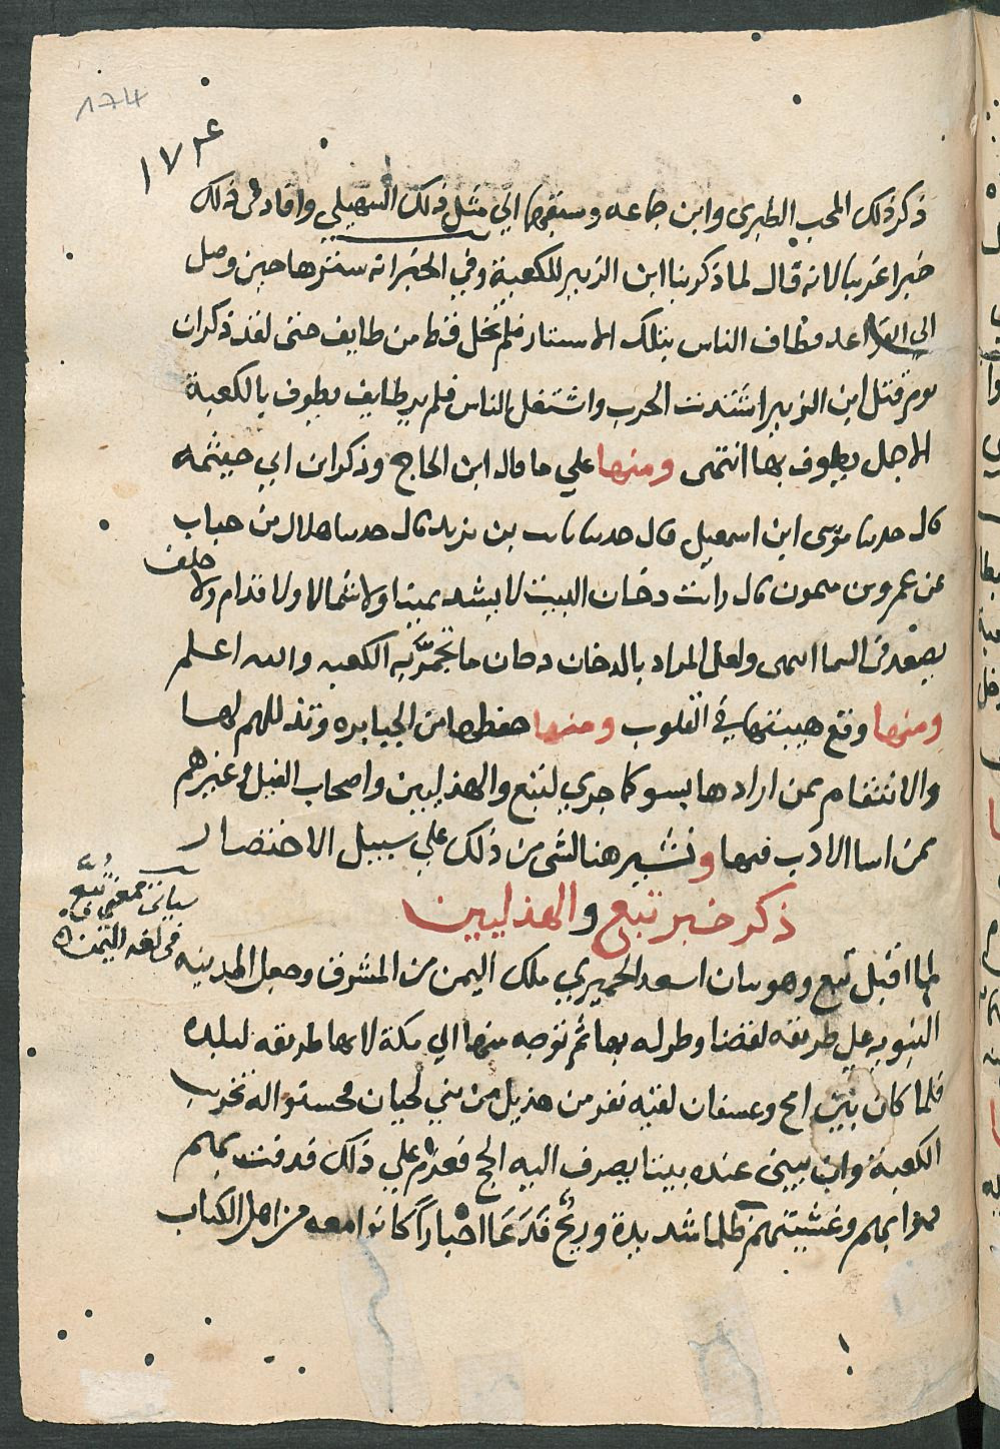 174
١٧٤
ذكر ذلك المحب الطبرى وابن جماعه وسبقهما الي مثل ذلك السهيلي وافاد فى ذلك
خبرا غريبا لانه قال لما ذكر بنا ابن الزبير للكعبة وفي الخبر انه سترها حين وصل
الى القواعد فطاف الناس بتلك الاستار فلم تخل قط من طايف حتى لقد ذكر ان
يوم قتل ابن الزبير اشتدت الحرب واشتغل الناس فلم ير طايف يطوف بالكعبة
الا جمل يطوف بها انتهى ومنها علي ما قال ابن الحاج وذكر ابن ابي خيثمه
قال حدثنا موسى ابن اسمعيل قال حدثنا ثابت بن يزيد قال حدثنا هلال بن خباب
عن عمرو بن ميمون قال رات دخان البيت لا يمينا ولا شمالا ولا قدام ولا
خلف
يصعد فى السما انتهى ولعل المراد بالدخان دخان ما تجمّر به الكعبه والله اعلم
ومنها وقع هيبتها في القلوب ومنها حفظها من الجبابره وتذللهم لها
والانتقام ممن ارادها بسو كما جري لتبع والهذليين واصحاب الفيل وغيرهم
ممن اسا الادب فيها ونشير هنا لشى من ذلك علي سبيل الاختصار
ذكر خبر تبع والهذليين
سياتى معنى تبّع
فى لغه اليمن
لما اقبل تبع وهو اسعد الحميري ملك اليمن من المشرق وجعل المدينه
النبويه علي طريقه لقضا وطر له بها ثم توجه منها الي مكة لانها طريقه لبلده
فلما كان بين امج وعسفان لقيه نفر من هذيل من بني لحيان فحسنوا له تخريب
الكعبة وان يبنى عنده بيتا يصرف اليه الحج فعزم علي ذلك فدفت بهم
دوابهم وغشيتهم ظلما شديدة وريح فدعا احبارا كانوا معه من اهل الكتاب